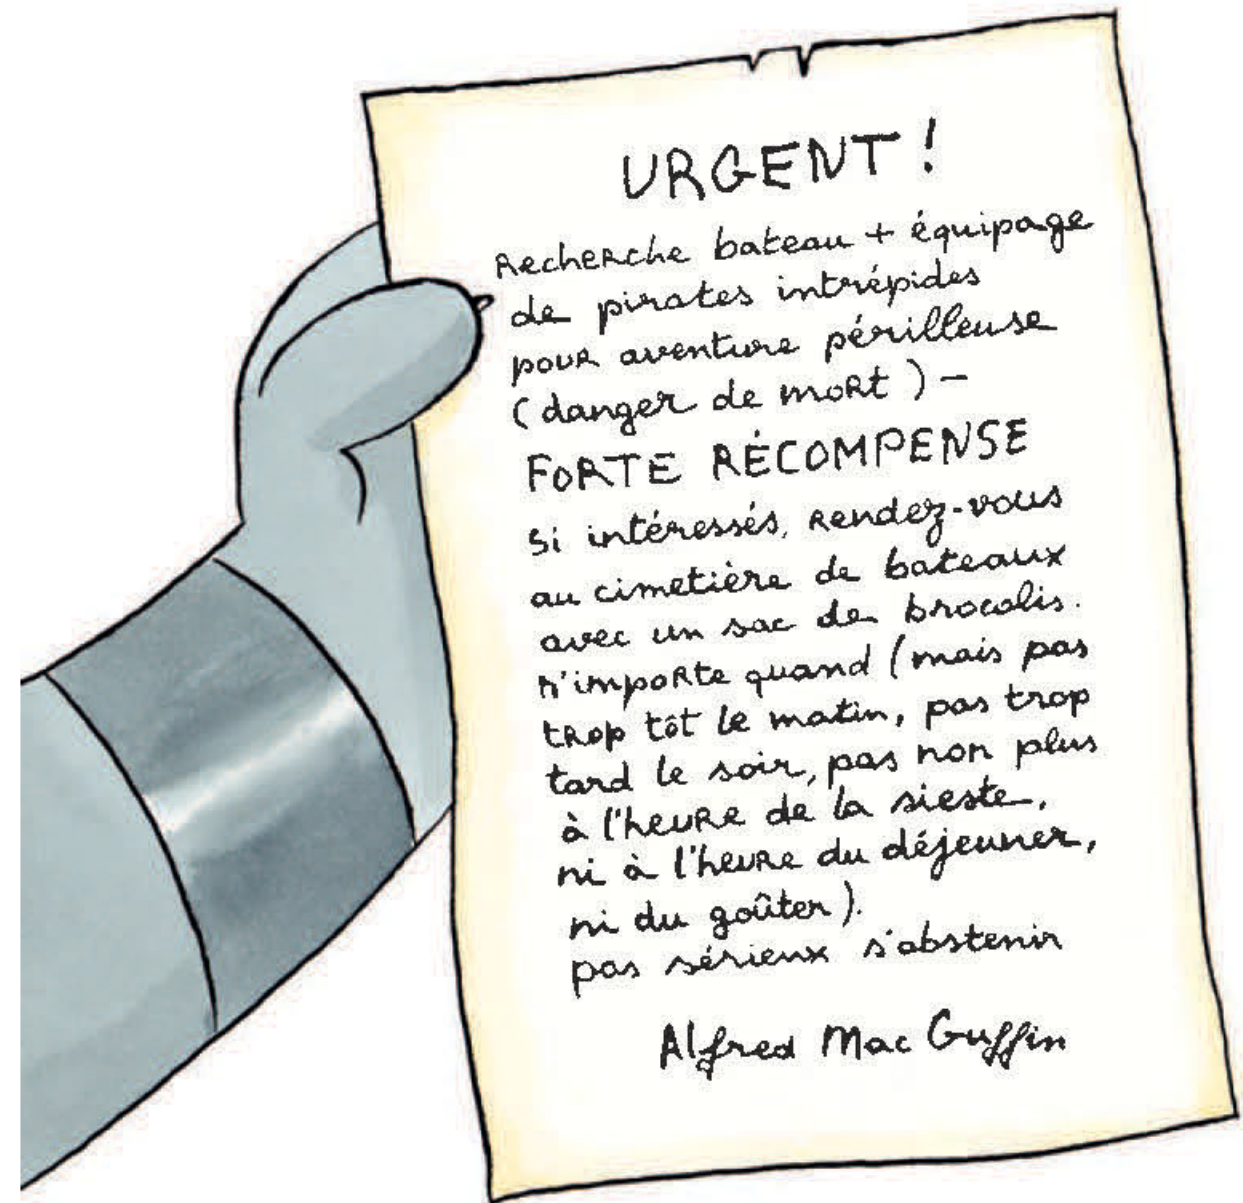 URGENT !
Recherche bateau + équipage
de pirates intrépides
pour aventure périlleuse
(danger de mort) –
FORTE RÉCOMPENSE
Si intéressés, rendez-vous
au cimetière de bateaux
avec un sac de brocolis.
n'importe quand (mais pas
trop tôt le matin, pas trop
tard le soir, pas non plus
à l'heure de la sieste,
ni à l'heure du déjeuner,
ni du goûter).
pas sérieux s'abstenir
Alfred Mac Guffin